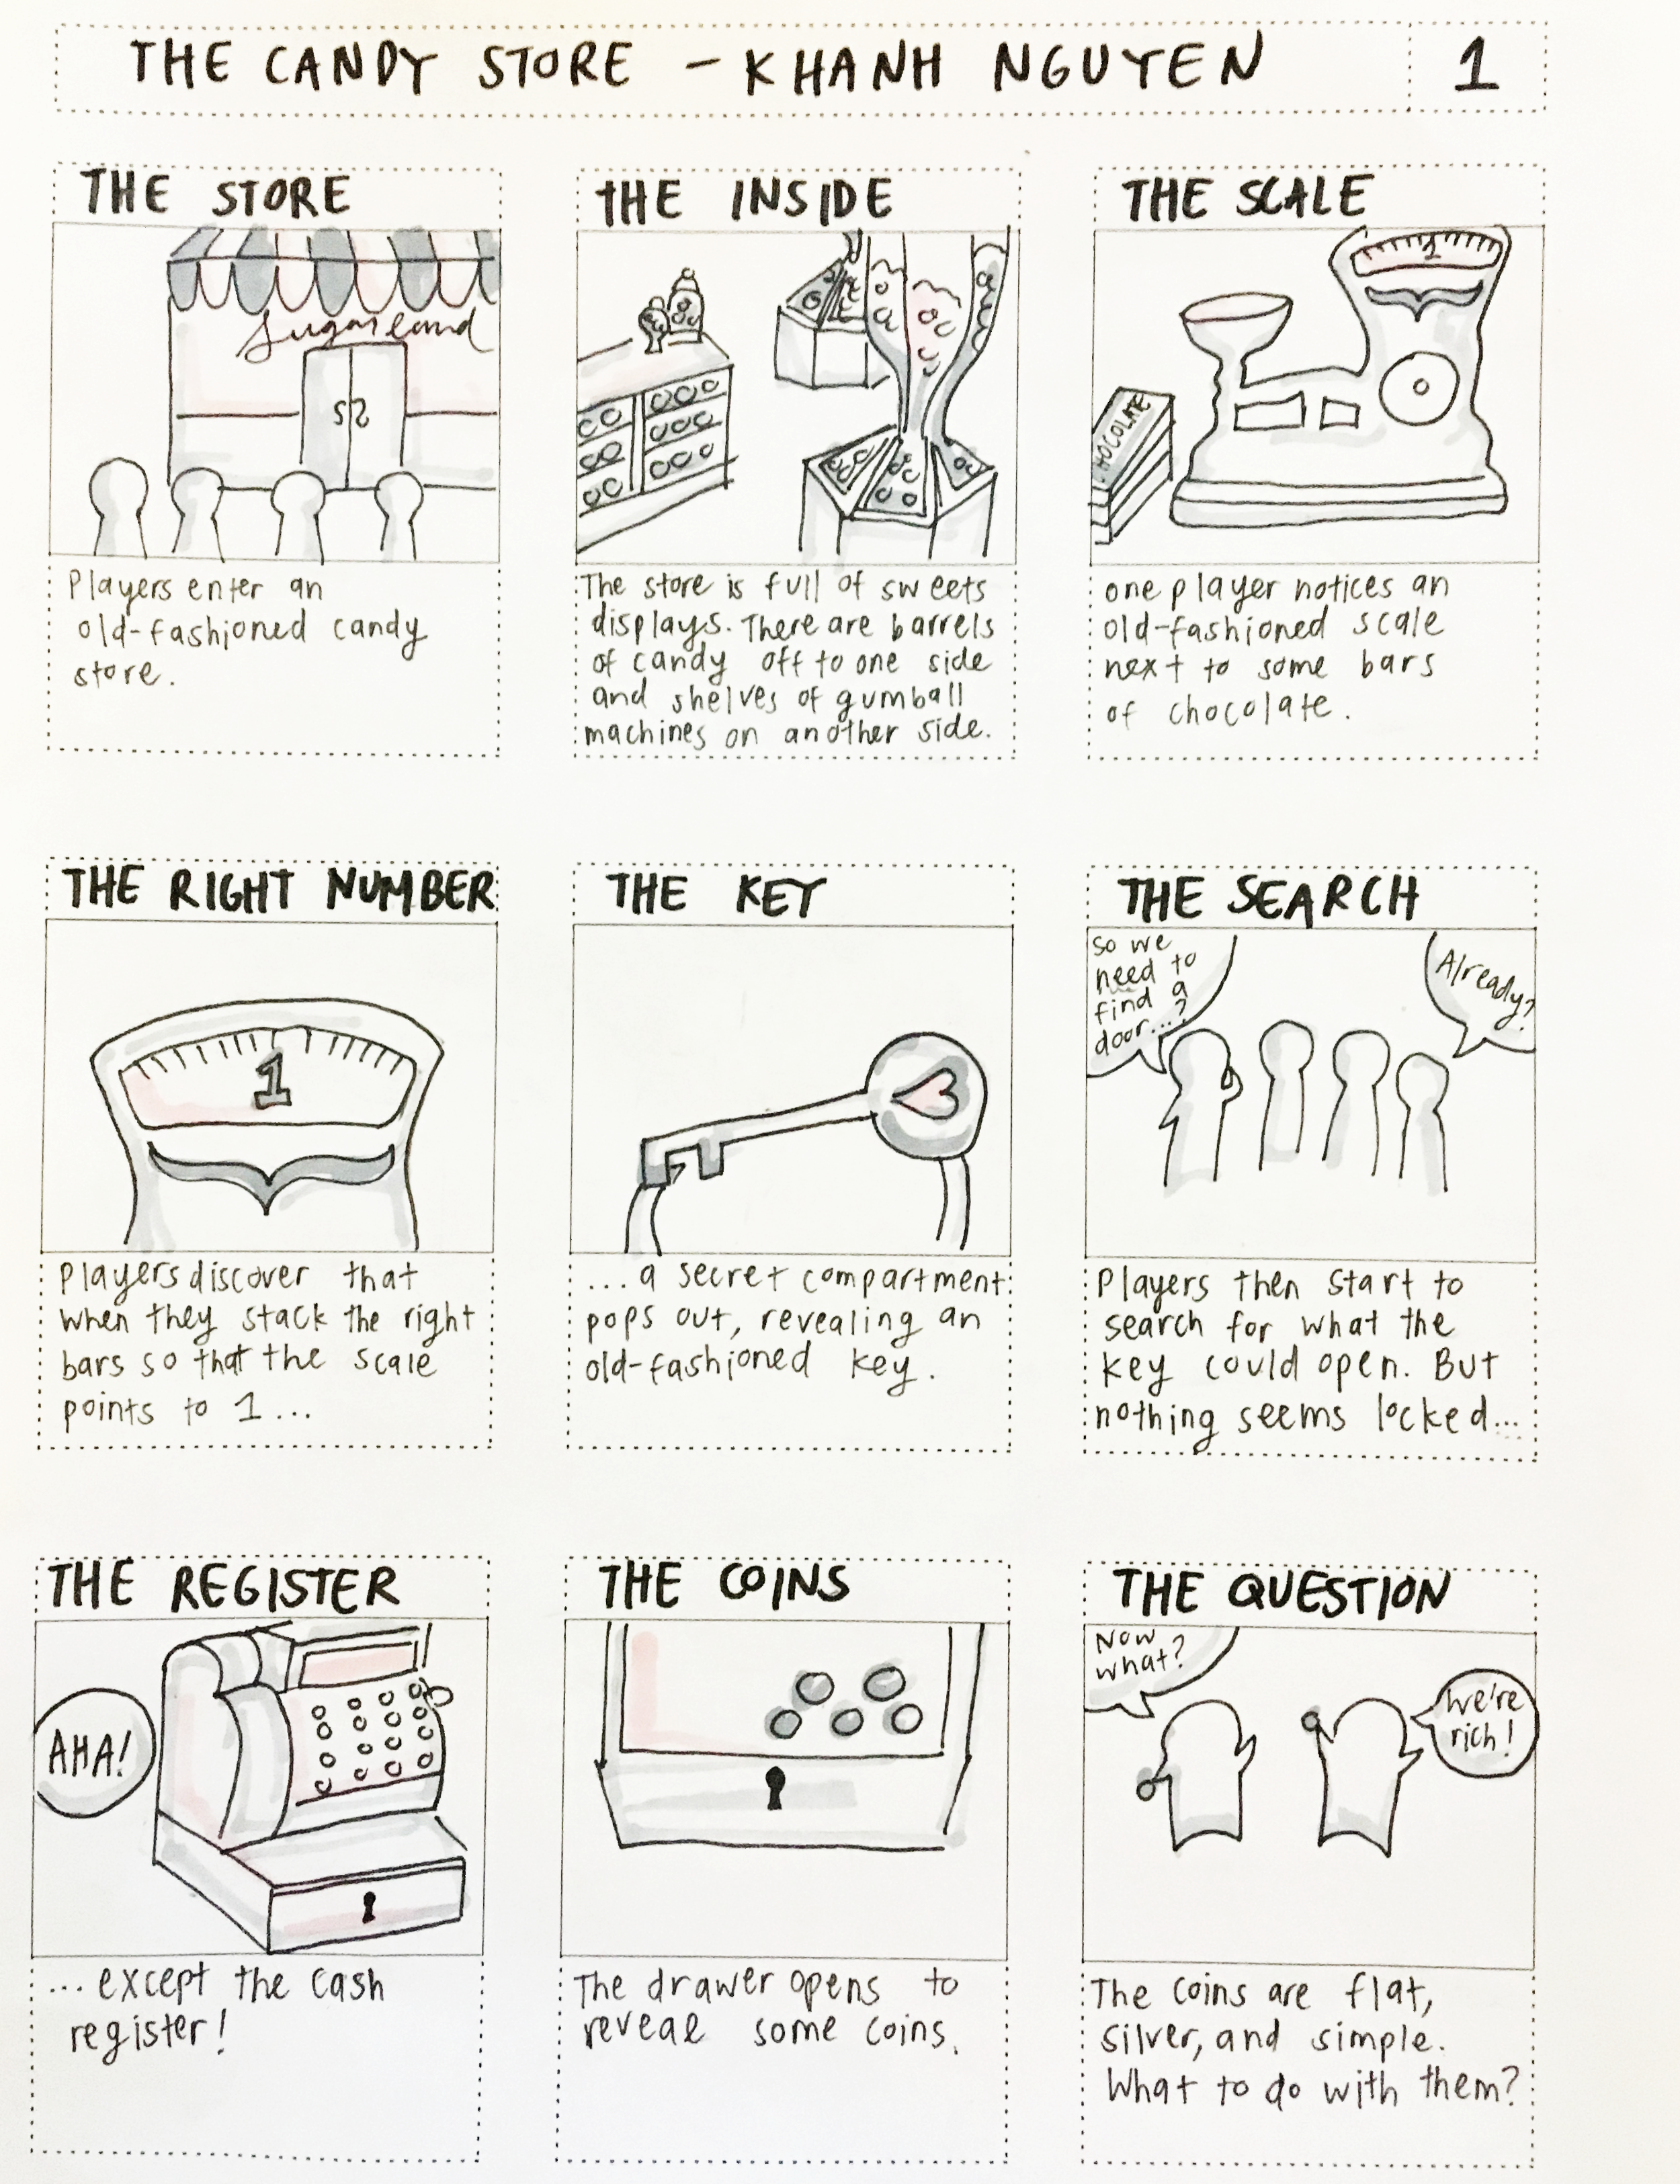 THE CANDY STORE - KHANH NGUYEN
1
THE STORE
Sugarland
Players enter an
old-fashioned candy
store.
THE INSIDE
The store is full of sweets
displays. There are barrels
of candy off to one side
and shelves of gumball
machines on another side.
THE SCALE
1
HOCOLATE
one player notices an
old-fashioned scale
next to some bars
of chocolate.
THE RIGHT NUMBER
1
Players discover that
when they stack the right
bars so that the scale
points to 1...
THE KEY
...a secret compartment
pops out, revealing an
old-fashioned key.
THE SEARCH
So we
need to
find a
door...?
Already?
Players then start to
search for what the
key could open. But
nothing seems locked...
THE REGISTER
AHA!
... except the cash
register!
THE COINS
The drawer opens to
reveal some coins.
THE QUESTION
Now
what?
We're
rich!
The coins are flat,
silver, and simple.
What to do with them?